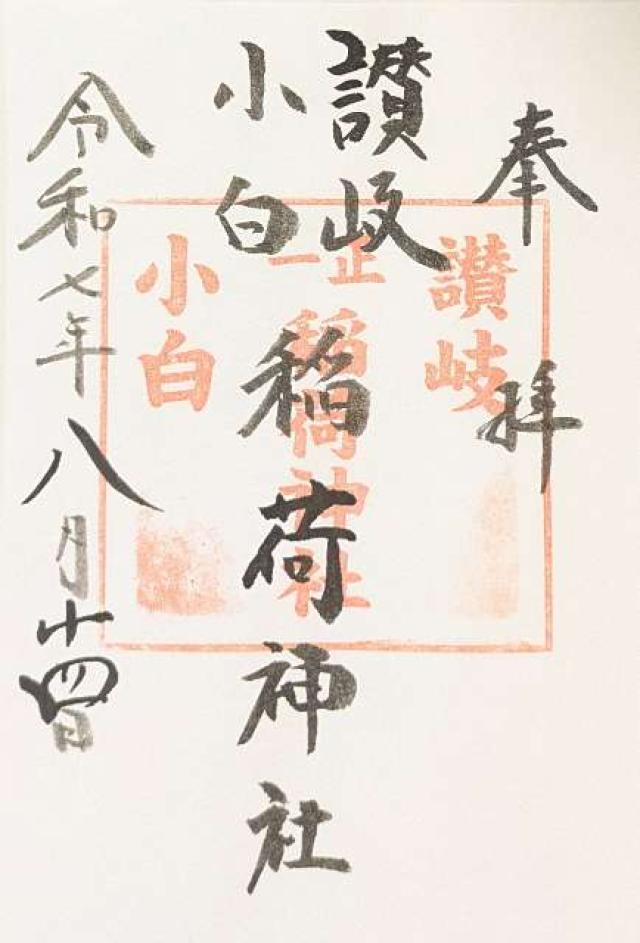 奉拝
讃岐
小白
稲荷神社
令和七年八月十四日
讃岐
正一
稲荷神社
小白